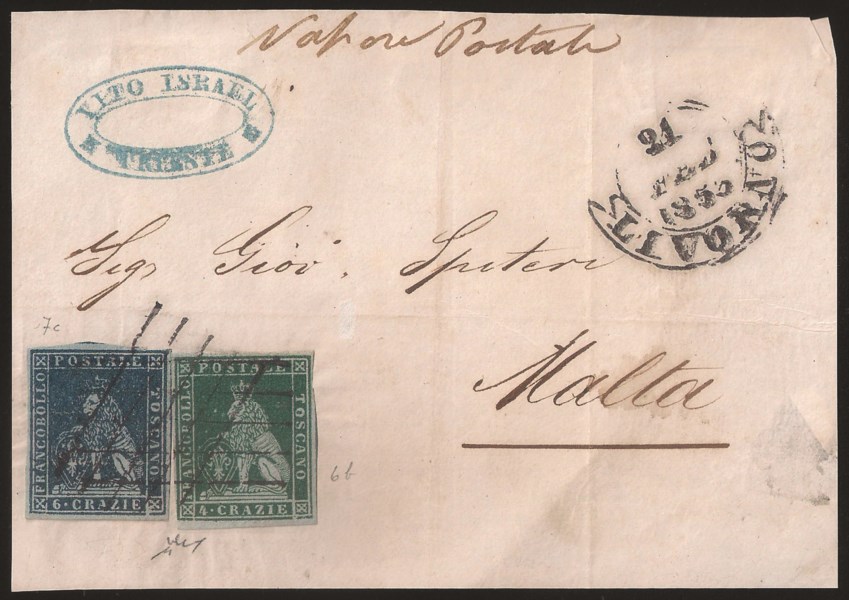 Vapore Postale
VITO ISRAEL
TRIESTE
21
FEB
1853
LIVORNO
Sigr Giov. Spiteri
Malta
7c
POSTALE
FRANCOBOLLO
TOSCANO
6·CRAZIE
POSTALE
FRANCOBOLLO
TOSCANO
4·CRAZIE
6b